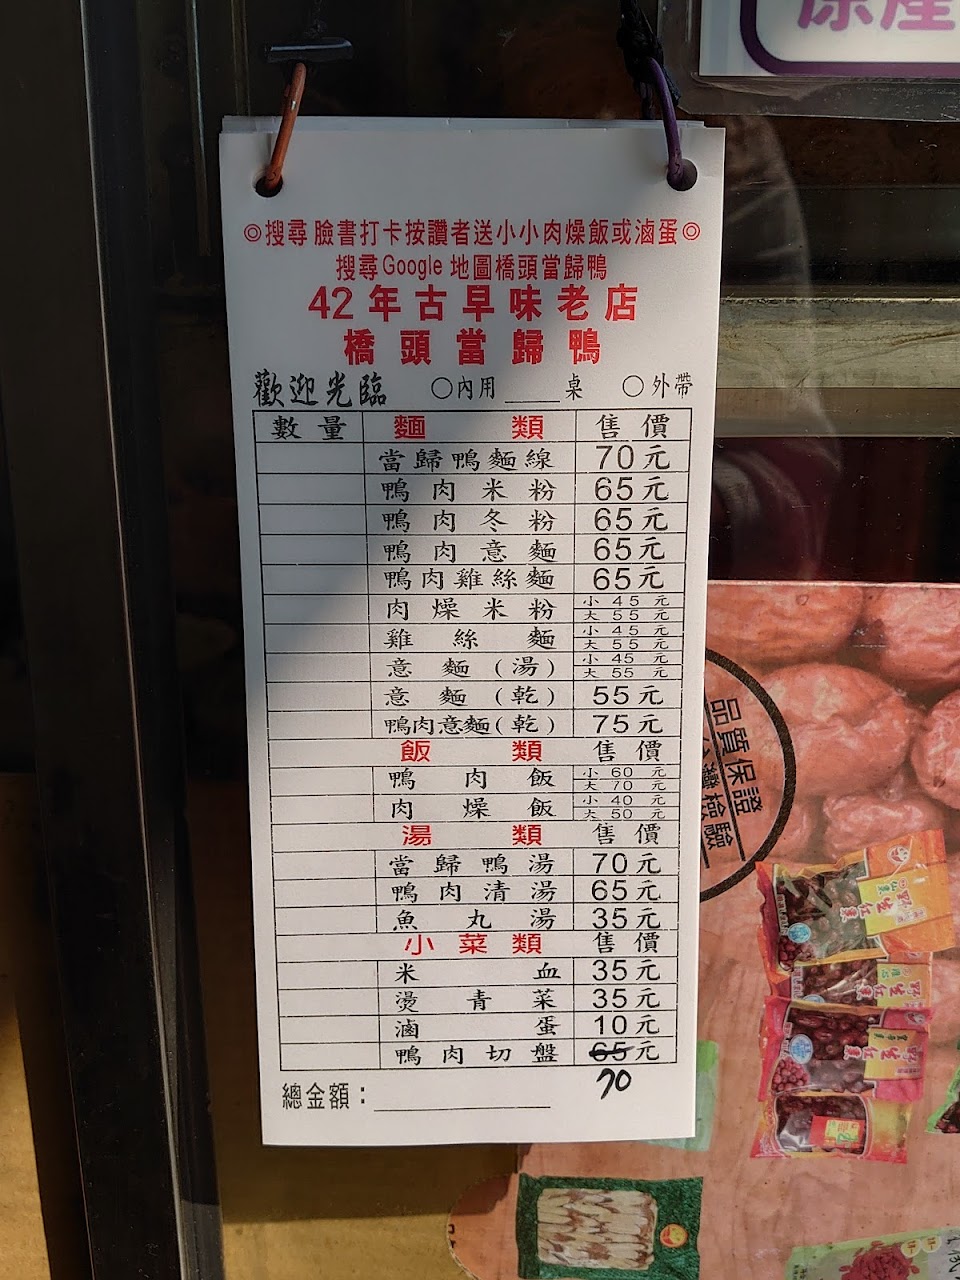 ◎搜尋 臉書打卡按讚者送小小肉燥飯或滷蛋◎
搜尋Google 地圖橋頭當歸鴨
42年古早味老店
橋頭當歸鴨
歡迎光臨 ○內用 ____ 桌 ○外帶
數量 麵類 售價
當歸鴨麵線 70元
鴨肉米粉 65元
鴨肉冬粉 65元
鴨肉意麵 65元
鴨肉雞絲麵 65元
肉燥米粉 小 45 元
大 55 元
雞絲麵 小 45 元
大 55 元
意麵(湯) 小 45 元
大 55 元
意麵(乾) 55元
鴨肉意麵(乾) 75元
飯類 售價
鴨肉飯 小 60 元
大 70 元
肉燥飯 小 40 元
大 50 元
湯類 售價
當歸鴨湯 70元
鴨肉清湯 65元
魚丸湯 35元
小菜類 售價
米血 35元
燙青菜 35元
滷蛋 10元
鴨肉切盤 65元
70
總金額：
品質保證
檢驗